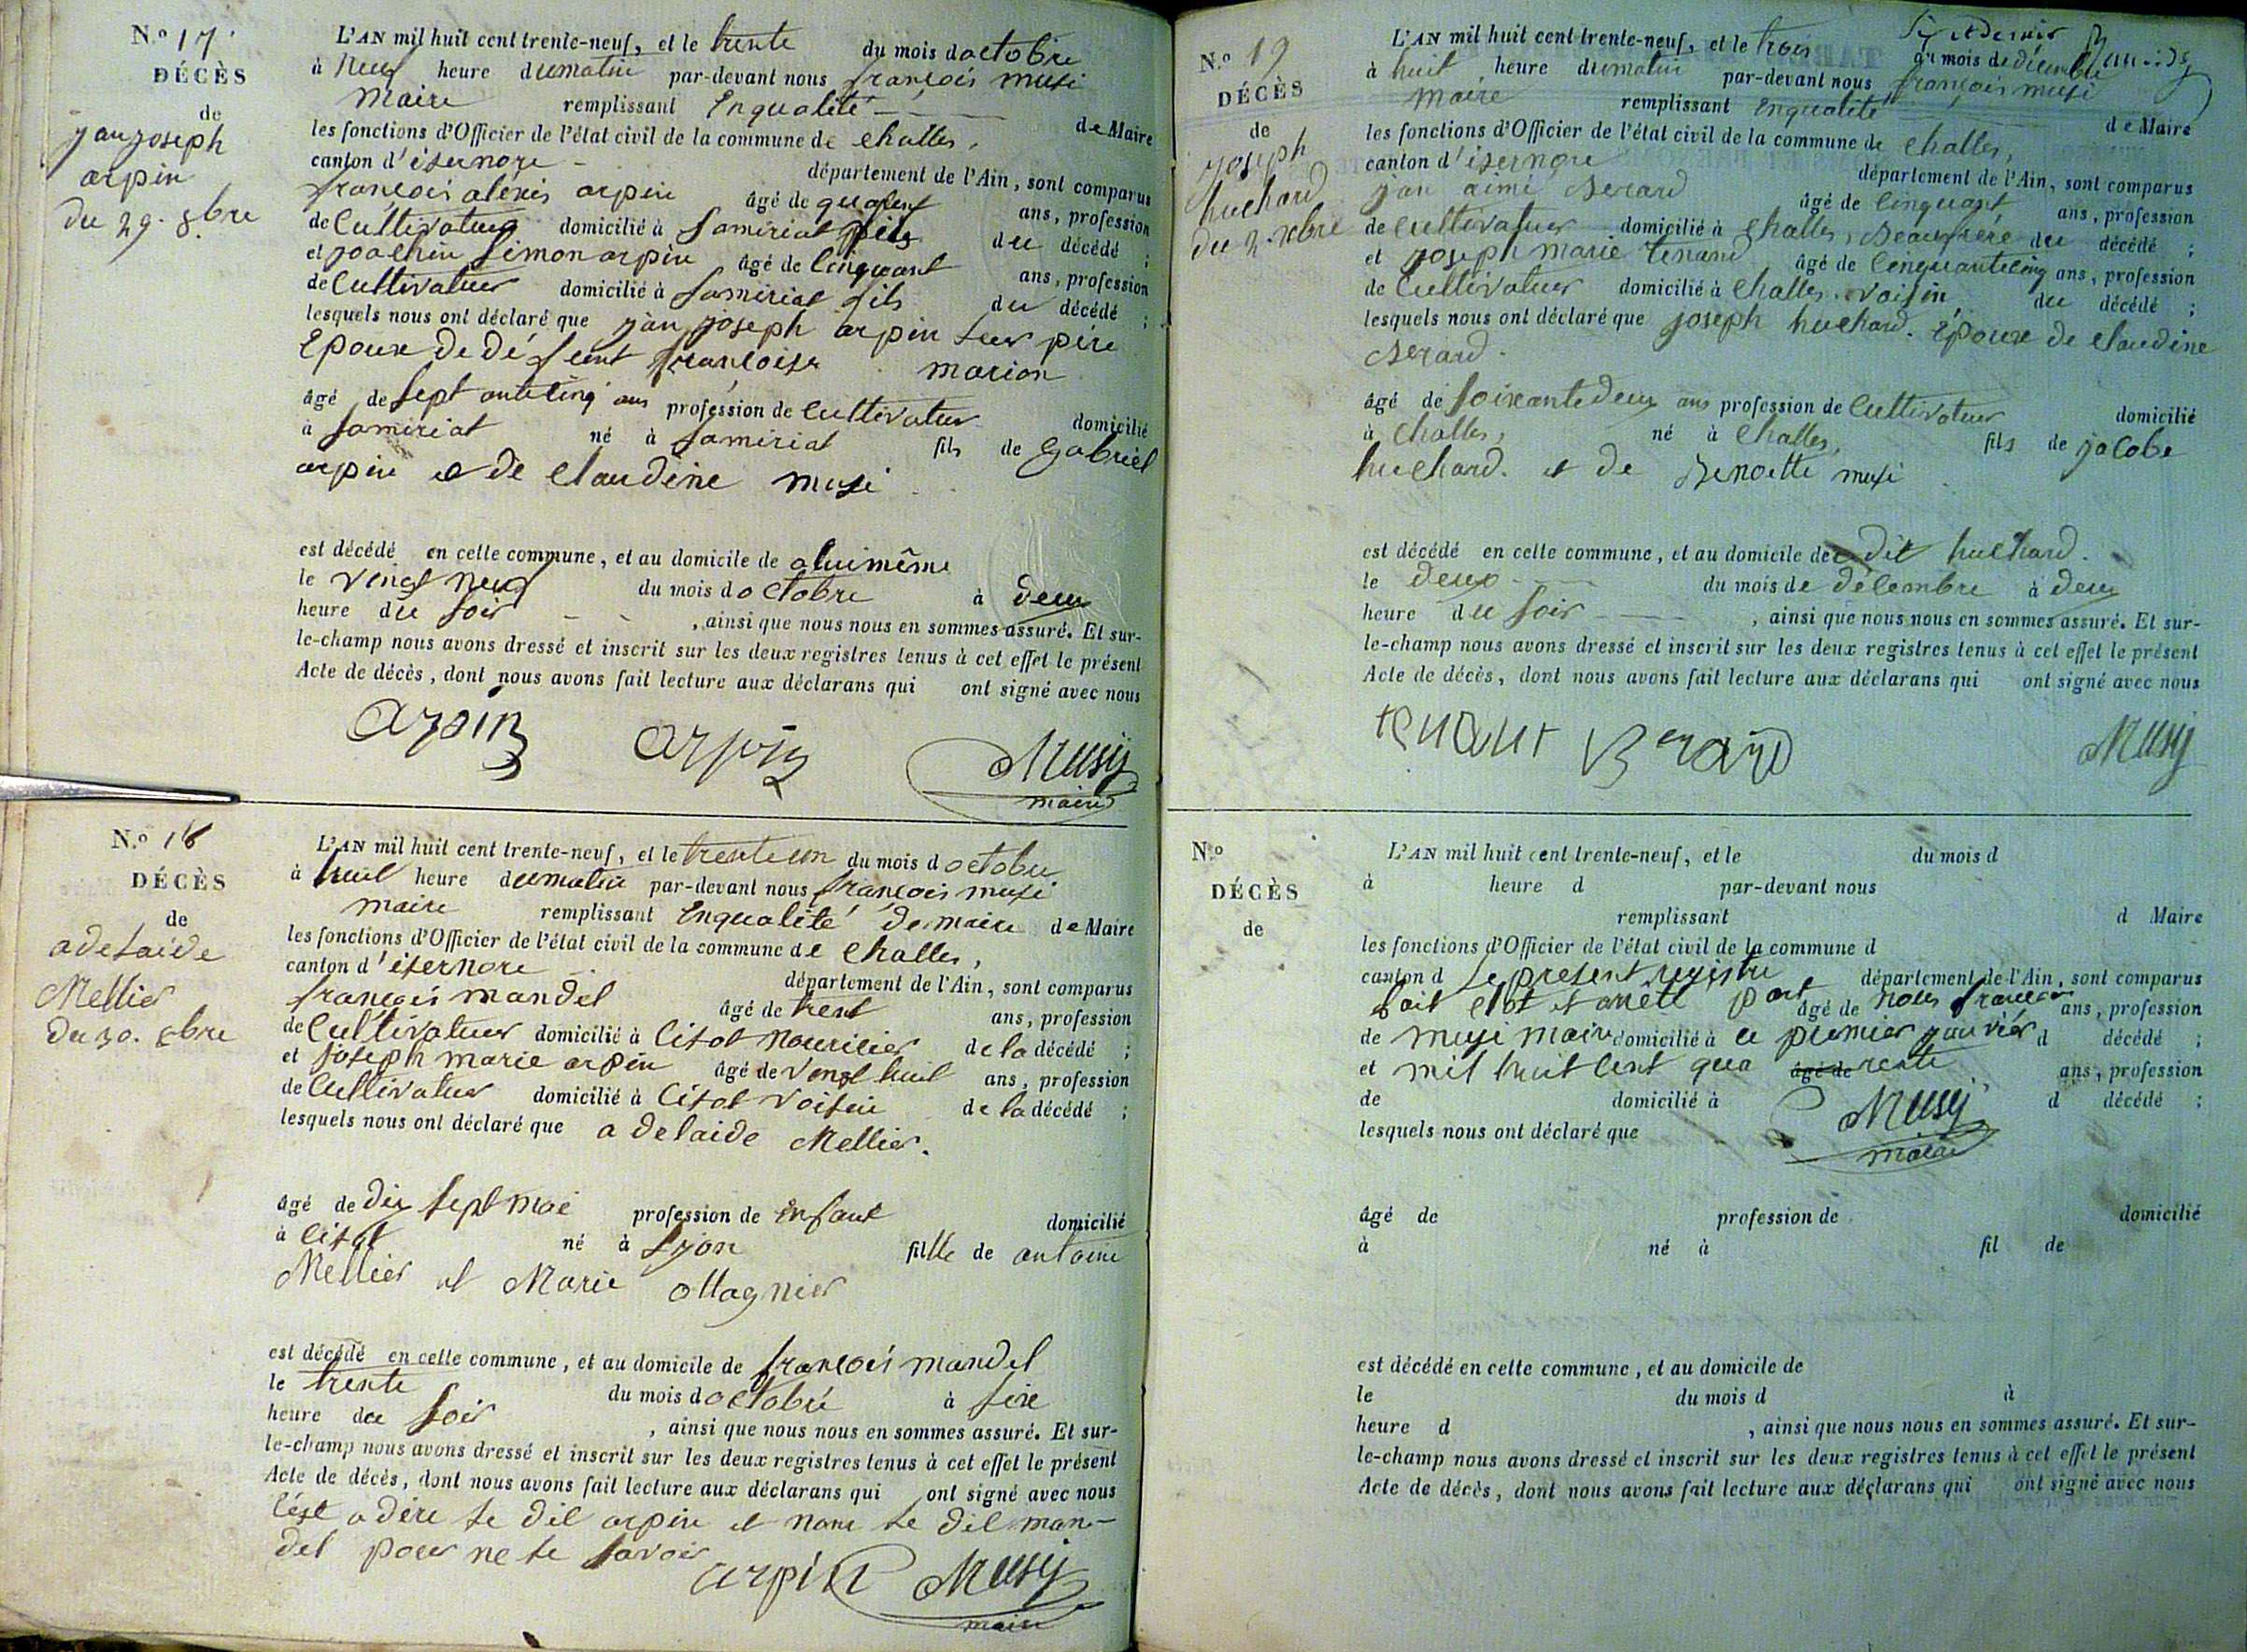 N.º 17
DÉCÈS
de
jan joseph
arpin
du 29. 8.bre
L'AN mil huit cent trente-neuf, et le trente du mois d octobre
à neuf heure du matin par-devant nous françois musi
maire remplissant Enqualité de Maire
les fonctions d'Officier de l'état civil de la commune de Challes,
canton d'isernore département de l'Ain, sont comparus
françois alexis arpin âgé de ans, profession
de Cultivateur domicilié à Samiriat fils du décédé ;
et joachin Simon arpin âgé de Cinquant ans, profession
de Cultivateur domicilié à Samiriat fils du décédé ;
lesquels nous ont déclaré que jan joseph arpin leur père
Epoux de défeunt françoise marion
âgé de Sept ante cinq ans profession de Cultivateur domicilié
à Samiriat né à Samiriat fils de Gabriel
arpin et de Claudine musi
est décédé en cette commune, et au domicile de a lui même
le vingt neuf du mois d octobre à deux
heure du Soir , ainsi que nous nous en sommes assuré. Et sur-
le-champ nous avons dressé et inscrit sur les deux registres tenus à cet effet le présent
Acte de décès, dont nous avons fait lecture aux déclarans qui ont signé avec nous
arpin arpin Musy
maire
N.º 18
DÉCÈS
de
adelaide
Mellier
Du 30. 8bre
L'AN mil huit cent trente-neuf, et le trente un du mois d octobre
à huit heure du matin par-devant nous françois musi
maire remplissant Enqualité de maire de Maire
les fonctions d'Officier de l'état civil de la commune de Challes,
canton d'isernore département de l'Ain, sont comparus
françois mandel âgé de trent ans, profession
de Cultivateur domicilié à Cisot nouricier de la décédé ;
et joseph marie arpin âgé de vingt huit ans, profession
de Cultivateur domicilié à Cisot voisin de la décédé ;
lesquels nous ont déclaré que adelaide Mellier.
âgé de dix sept moi profession de Enfant domicilié
à Cisot né à Lyon fille de antoine
Mellier et Marie ollagnier
est décédé en cette commune, et au domicile de françois mandel
le trente du mois d octobre à sixe
heure du soir , ainsi que nous nous en sommes assuré. Et sur-
le-champ nous avons dressé et inscrit sur les deux registres tenus à cet effet le présent
Acte de décès, dont nous avons fait lecture aux déclarans qui ont signé avec nous
C'est a dire le dit arpin et nom le dit man-
del pour ne le savoir
arpin Musy
maire
N.º 19
DÉCÈS
de
joseph
huchard
du 2. xbre
L'AN mil huit cent trente-neuf, et le trois du mois de décembre
à huit heure du matin par-devant nous françois musi
maire remplissant Enqualité de Maire
les fonctions d'Officier de l'état civil de la commune de Challes,
canton d'isernore département de l'Ain, sont comparus
jan aimé Berard âgé de Cinquant ans, profession
de Cultivateur domicilié à Challes, Beaufrere du décédé ;
et joseph marie tenand âgé de Cinquantecinq ans, profession
de Cultivateur domicilié à Challes. voisin du décédé ;
lesquels nous ont déclaré que joseph huchard. Epoux de Claudine
Berard.
âgé de soixante deux ans profession de Cultivateur domicilié
à Challes, né à Challes, fils de jacobe
huchard. et de Benoette musi
est décédé en cette commune, et au domicile de dit huchard.
le deux du mois de décembre à deux
heure du soir , ainsi que nous nous en sommes assuré. Et sur-
le-champ nous avons dressé et inscrit sur les deux registres tenus à cet effet le présent
Acte de décès, dont nous avons fait lecture aux déclarans qui ont signé avec nous
Berard Musy
N.º
DÉCÈS
de
L'AN mil huit cent trente-neuf, et le du mois d
à heure d par-devant nous
remplissant d Maire
les fonctions d'Officier de l'état civil de la commune d
canton d Le present registre département de l'Ain, sont comparus
fait clot et arrêtt part âgé de nous francois ans, profession
de musi maire domicilié à ce premier janvier d décédé ;
et mil huit cent qua âgé de rente ans, profession
de domicilié à Musy d décédé ;
lesquels nous ont déclaré que maire
âgé de profession de domicilié
à né à fil de
est décédé en cette commune, et au domicile de
le du mois d à
heure d , ainsi que nous nous en sommes assuré. Et sur-
le-champ nous avons dressé et inscrit sur les deux registres tenus à cet effet le présent
Acte de décès, dont nous avons fait lecture aux déclarans qui ont signé avec nous